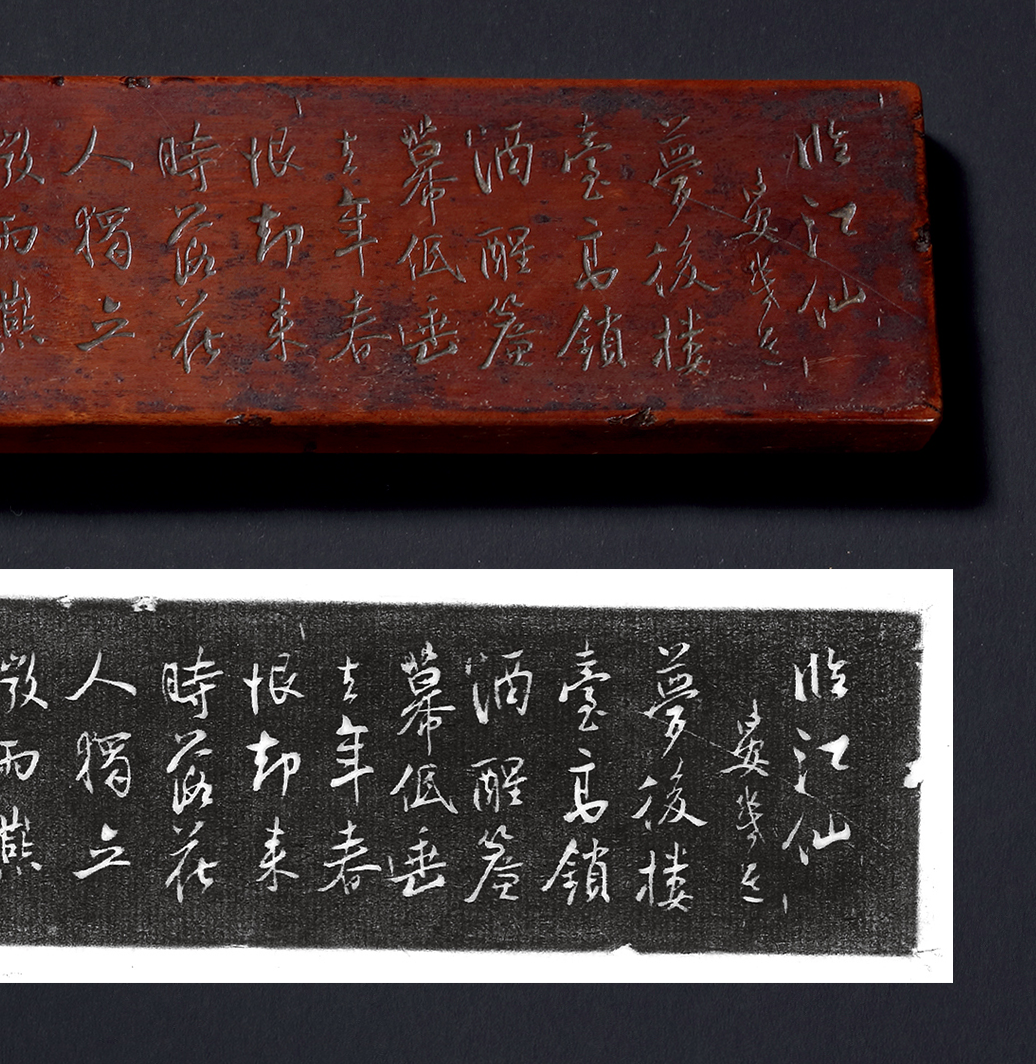 臨江仙
晏幾道
夢後樓
臺高鎖
酒醒簾
幕低垂
去年春
恨却来
時落花
人獨立
微雨燕
臨江仙
晏幾道
夢後樓
臺高鎖
酒醒簾
幕低垂
去年春
恨却来
時落花
人獨立
微雨燕